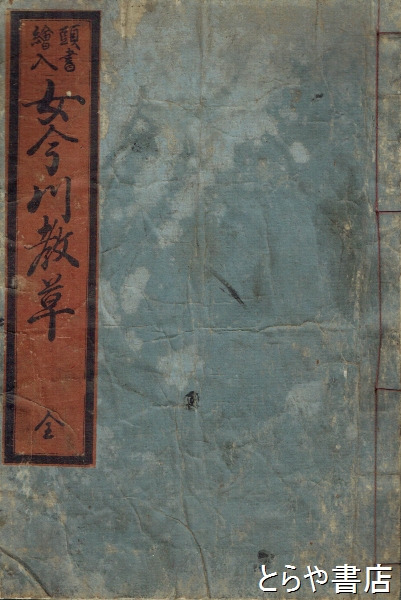 頭書
繪入
女今川教草
全
とらや書店